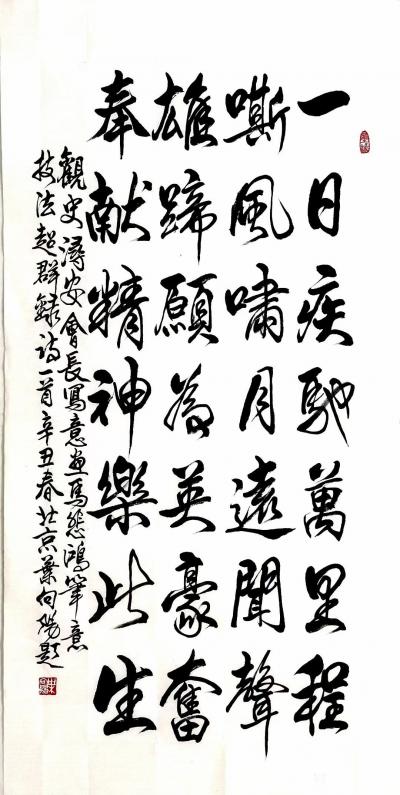 一日疾馳萬里程
嘶風嘯月遠聞聲
雄蹄願為英豪奮
奉献精神樂此生
觀史安會長寫意畫馬悲鴻筆意
技法超群錄詩一首辛丑春北京葉向陽題